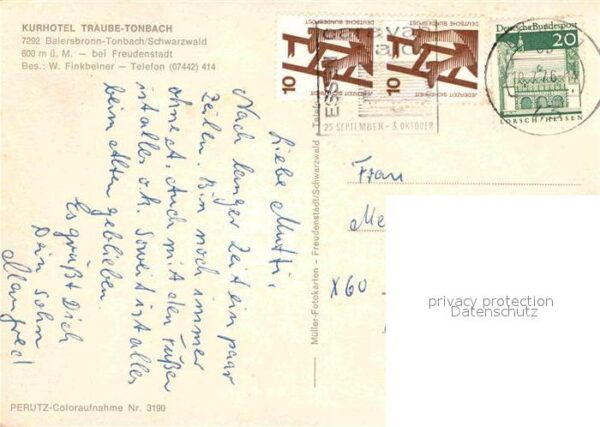 KURHOTEL TRAUBE-TONBACH
7292 Baiersbronn-Tonbach/Schwarzwald
600 m ü. M. — bei Freudenstadt
Bes.: W. Finkbeiner — Telefon (07442) 414
Liebe Mutti,
Nach langer Zeit ein paar
Zeilen. Bin noch immer
ohne A. Auch mit den Füßen
ist alles o.k. Soweit ist alles
beim Alten geblieben.
Es grüßt Dich
Dein Sohn
Manfred
PERUTZ-Coloraufnahme Nr. 3190
Müller-Fotokarten - Freudenstadt/Schwarzwald - Telefon
10
JEDERZEIT SICHERHEIT
DEUTSCHE BUNDESPOST
10
JEDERZEIT SICHERHEIT
DEUTSCHE BUNDESPOST
Deutsche Bundespost
20
LORSCH/HESSEN
ESSEN
25 SEPTEMBER - 3. OKTOBER
Frau
Me
X60
privacy protection
Datenschutz